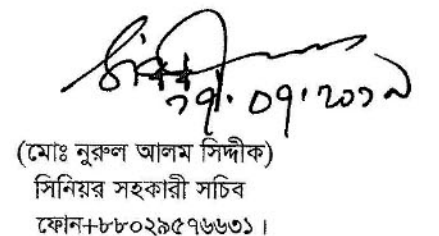 ১৭.০৭.২০১৯
(মোঃ নুরুল আলম সিদ্দীক)
সিনিয়র সহকারী সচিব
ফোন+৮৮০২৯৫৭৬৬৩১।